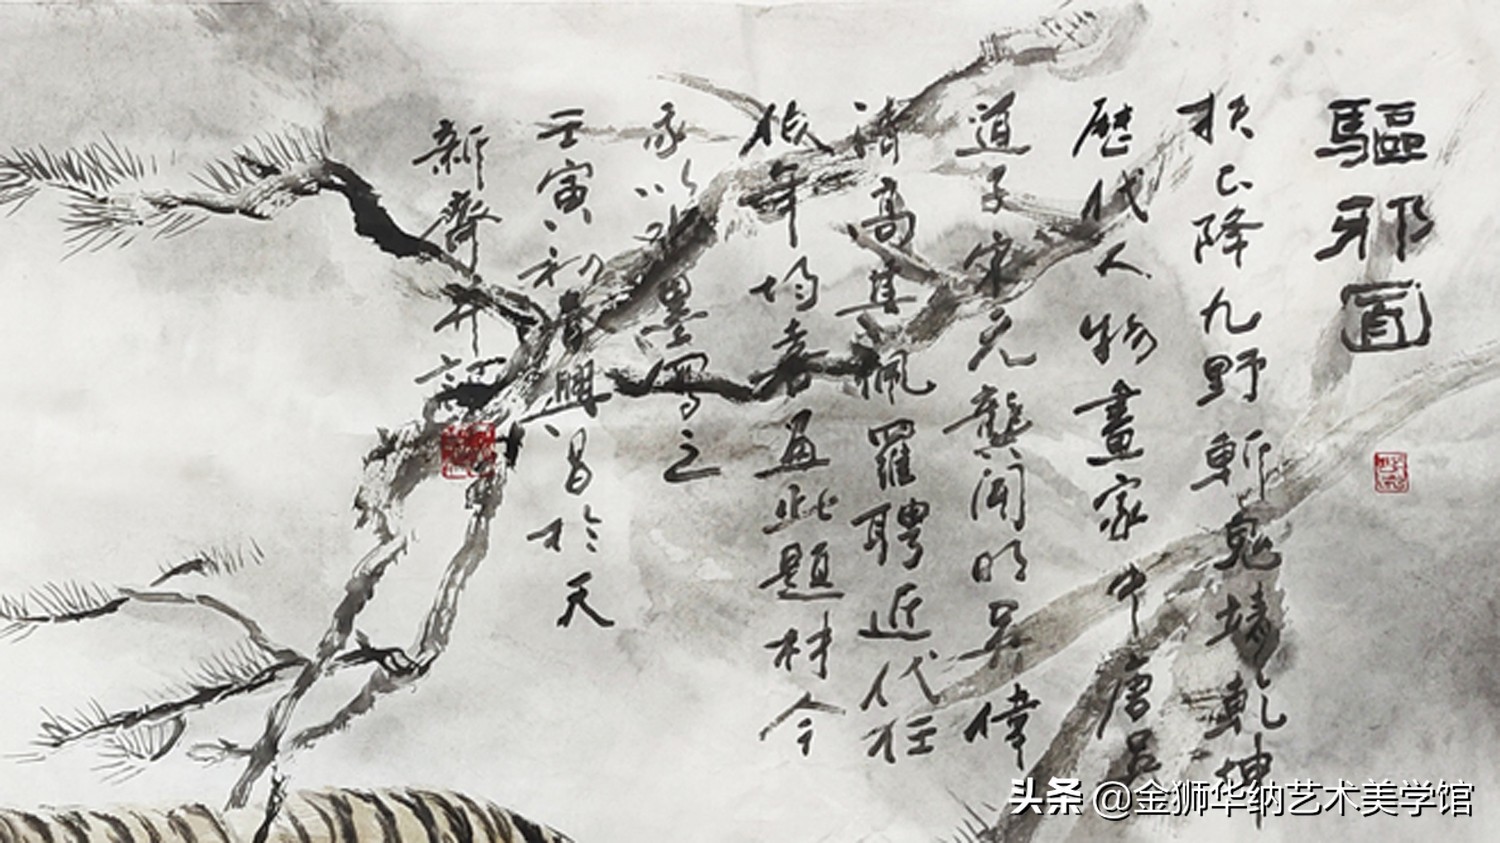 驅邪圖
扶正降九野斬鬼靖乾坤
歷代人物畫家中唐吳
道子宋元龔開明吳偉
清高其佩羅聘近代任
伯年均喜畫此題材今
余以水墨寫之
壬寅初春興昌於天
新齋并記
头条 @金狮华纳艺术美学馆